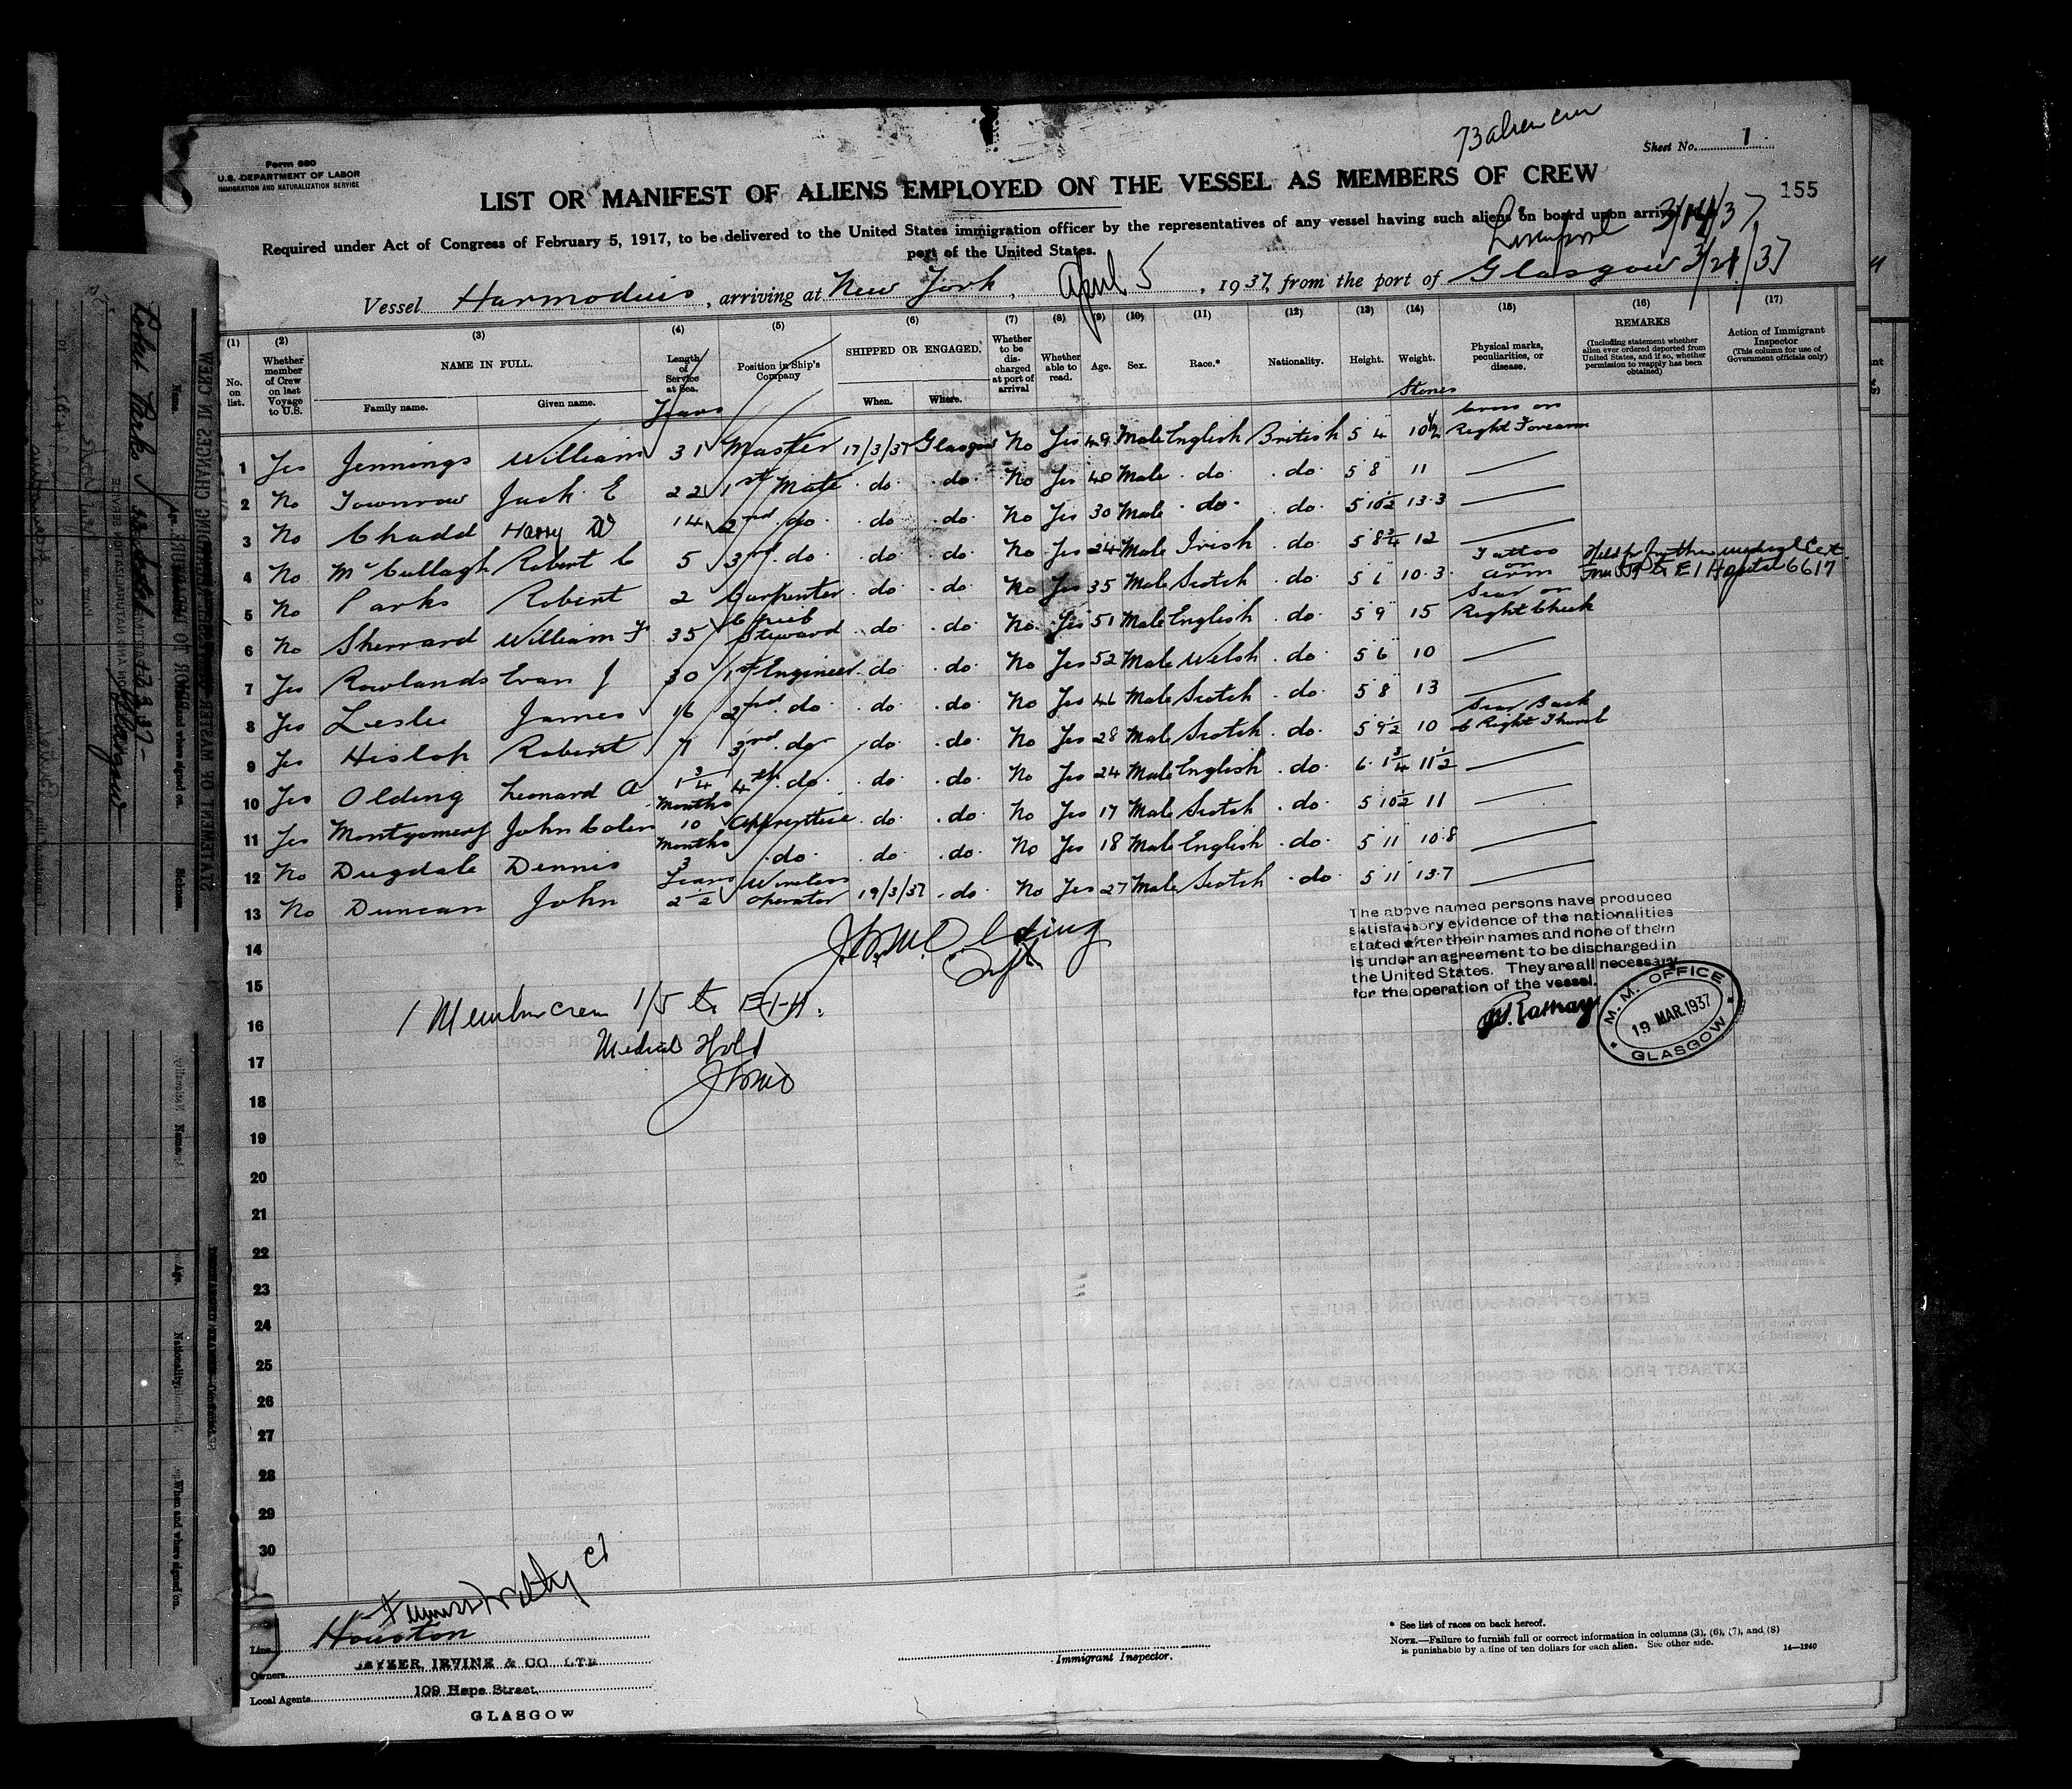 Form 680
U.S. DEPARTMENT OF LABOR
IMMIGRATION AND NATURALIZATION SERVICE
Sheet No. 1
LIST OR MANIFEST OF ALIENS EMPLOYED ON THE VESSEL AS MEMBERS OF CREW
155
Required under Act of Congress of February 5, 1917, to be delivered to the United States immigration officer by the representatives of any vessel having such aliens on board upon arrival
port of the United States.
Liverpool 3/14/37
Vessel Harmodius, arriving at New York, April 5, 1937, from the port of Glasgow 3/21/37
(1) (2) (3) (4) (5) (6) (7) (8) (9) (10) (11) (12) (13) (14) (15) (16) (17)
No. on list.
Whether member of Crew on last Voyage to U.S.
NAME IN FULL.
Family name. Given name.
Length of Service at Sea.
Years
Position in Ship's Company
SHIPPED OR ENGAGED.
When. Where.
Whether to be discharged at port of arrival
Whether able to read.
Age. Sex. Race.* Nationality. Height. Weight.
Stones
Physical marks, peculiarities, or disease.
REMARKS
(Including statement whether alien ever ordered deported from United States, and if so, whether permission to reapply has been obtained)
Action of Immigrant Inspector
(This column for use of Government officials only)
1 Yes Jennings William 31 Master 17/3/37 Glasgow No Yes 49 Male English British 5 4 10½ Right Forearm
2 No Townrow Jack E 22 1st Mate do do No Yes 40 Male do do 5 8 11
3 No Chadd Harry W 14 2nd do do do No Yes 30 Male do do 5 10½ 13.3
4 No McCullagh Robert C 5 3rd do do do No Yes 24 Male Irish do 5 8¾ 12
5 No Parks Robert 2 Carpenter do do No Yes 35 Male Scotch do 5 6 10.3 Tattoo on arm Held for further medical
E I Hospital 6617
6 No Sherrard William F 35 Chief Steward do do No Yes 51 Male English do 5 9 15 Scar on Right Cheek
7 Yes Rowlands Evan J 30 1st Engineer do do No Yes 52 Male Welsh do 5 6 10
8 Yes Leslie James 16 2nd do do do No Yes 46 Male Scotch do 5 8 13
9 Yes Hislop Robert 7 3rd do do do No Yes 28 Male Scotch do 5 9½ 10 Scar Back of Right Thumb
10 Yes Olding Leonard A 1¾ 4th do do do No Yes 24 Male English do 6 1¾ 11½
11 Yes Montgomery John Colin Months 10 Apprentice do do No Yes 17 Male Scotch do 5 10½ 11
12 No Dugdale Dennis Months 3 do do do No Yes 18 Male English do 5 11 10.8
13 No Duncan John Years 2½ Wireless Operator 19/3/37 do No Yes 27 Male Scotch do 5 11 13.7
The above named persons have produced
satisfactory evidence of the nationalities
stated after their names and none of them
is under an agreement to be discharged in
the United States. They are all necessary
for the operation of the vessel.
14
15
1 Member crew 1/5 to E-I-H.
Medical Hold
M. M. OFFICE
19 MAR. 1937
GLASGOW
16
17
18
19
20
21
22
23
24
25
26
27
28
29
30
Line Houston
Owners CAYZER, IRVINE & CO. LTD
Local Agents 109 Hope Street,
GLASGOW
Immigrant Inspector.
* See list of races on back hereof.
NOTE.—Failure to furnish full or correct information in columns (3), (6), (7), and (8)
is punishable by a fine of ten dollars for each alien. See other side.
14—1240